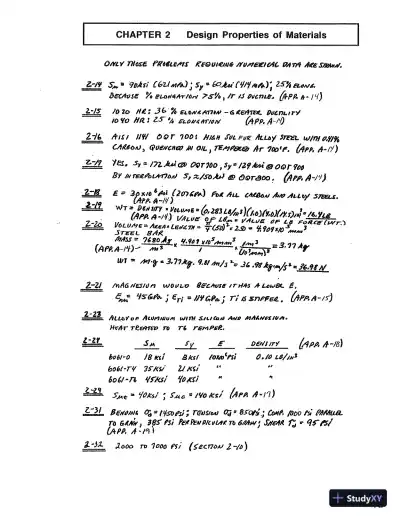 CHAPTER 2 Design Properties of Materials
ONLY THOSE PROBLEMS REQUIRING NUMERICAL DATA ARE SHOWN.
2-14 Su = 90KSi (621 MPa); Sy = 60 ksi (414 MPa); 25% ELONG.
BECAUSE % ELONGATION > 5%, IT IS DUCTILE. (APP. A-14)
2-15 1020 HR: 36 % ELONGATION - GREATER DUCTILITY
1040 HR: 25 % ELONGATION (APP. A-14)
2-16 AISI 1141 OQT 700: HIGH SULFUR ALLOY STEEL WITH 0.41%
CARBON, QUENCHED IN OIL, TEMPERED AT 700°F. (APP. A-14)
2-17 YES. Sy = 172 ksi @ OQT 700, Sy = 129 ksi @ OQT 900
BY INTERPOLATION Sy ≈ 150 ksi @ OQT 800. (APP. A-14)
2-18 E = 30×10⁶ psi (207 GPa) FOR ALL CARBON AND ALLOY STEELS.
(APP. A-14)
2-19 WT = DENSITY × VOLUME = (0.283 LB/in³)(1.0)(4.0)(14.5)in³ = 16.4 LB
(APP. A-14) VALUE OF LBm = VALUE OF LB FORCE (WT.)
2-20 VOLUME = AREA × LENGTH = π/4 (50)² × 250 = 4.909×10⁵ mm³
STEEL BAR
MASS = 7680 kg/m³ × 4.909×10⁵ mm³/1 × 1m³/(10³mm)³ = 3.77 kg
(APP. A-14)
WT = m·g = 3.77 kg · 9.81 m/s² = 36.98 kg·m/s² = 36.98 N
2-21 MAGNESIUM WOULD BECAUSE IT HAS A LOWER E.
Em = 45 GPa; ETi = 114 GPa; Ti IS STIFFER. (APP. A-15)
ALLOY OF ALUMINUM WITH SILICON AND MAGNESIUM.
HEAT TREATED TO T6 TEMPER.
Su Sy E DENSITY (APP. A-18)
6061-0 18 KSi 8 KSi 10×10⁶ PSi 0.10 LB/IN³
6061-T4 35 KSi 21 KSi " "
6061-T6 45 KSi 40 KSi " "
2-29 = 40 KSi; = 140 KSi (APP. A-17)
2-31 BENDING σd = 1450 PSi; TENSION σd = 850 PSi; COMP. 1000 PSi PARALLEL
TO GRAIN, 385 PSi PERPENDICULAR TO GRAIN; SHEAR τd = 95 PSi
(APP. A-19)
2-32 2000 TO 7000 PSi (SECTION 2-10)
+ StudyXY